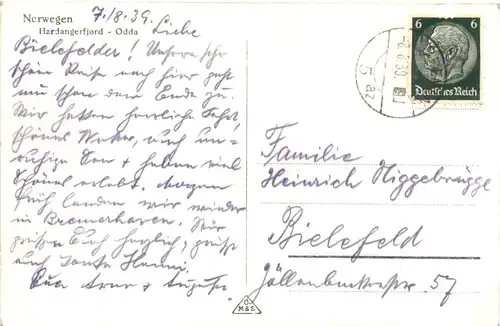 Norwegen
Hardangerfjord - Odda
7./8.39. Liebe
Bielefelder! Unsere sehr
schöne Reise nach hier geht
nun schon dem Ende zu.
Wir hatten herrliche Fahrt,
schönes Wetter, auch un-
ruhige See & haben viel
Schönes erlebt. Morgen
früh landen wir wieder
in Bremerhaven. Wir
grüßen Euch herzlich, grüßt
auch Tante Hanni.
Eure
&
C.
M&S
6 6
Deutsches Reich
-8.8.39
Familie
Heinrich Niggebrügge
Bielefeld
57